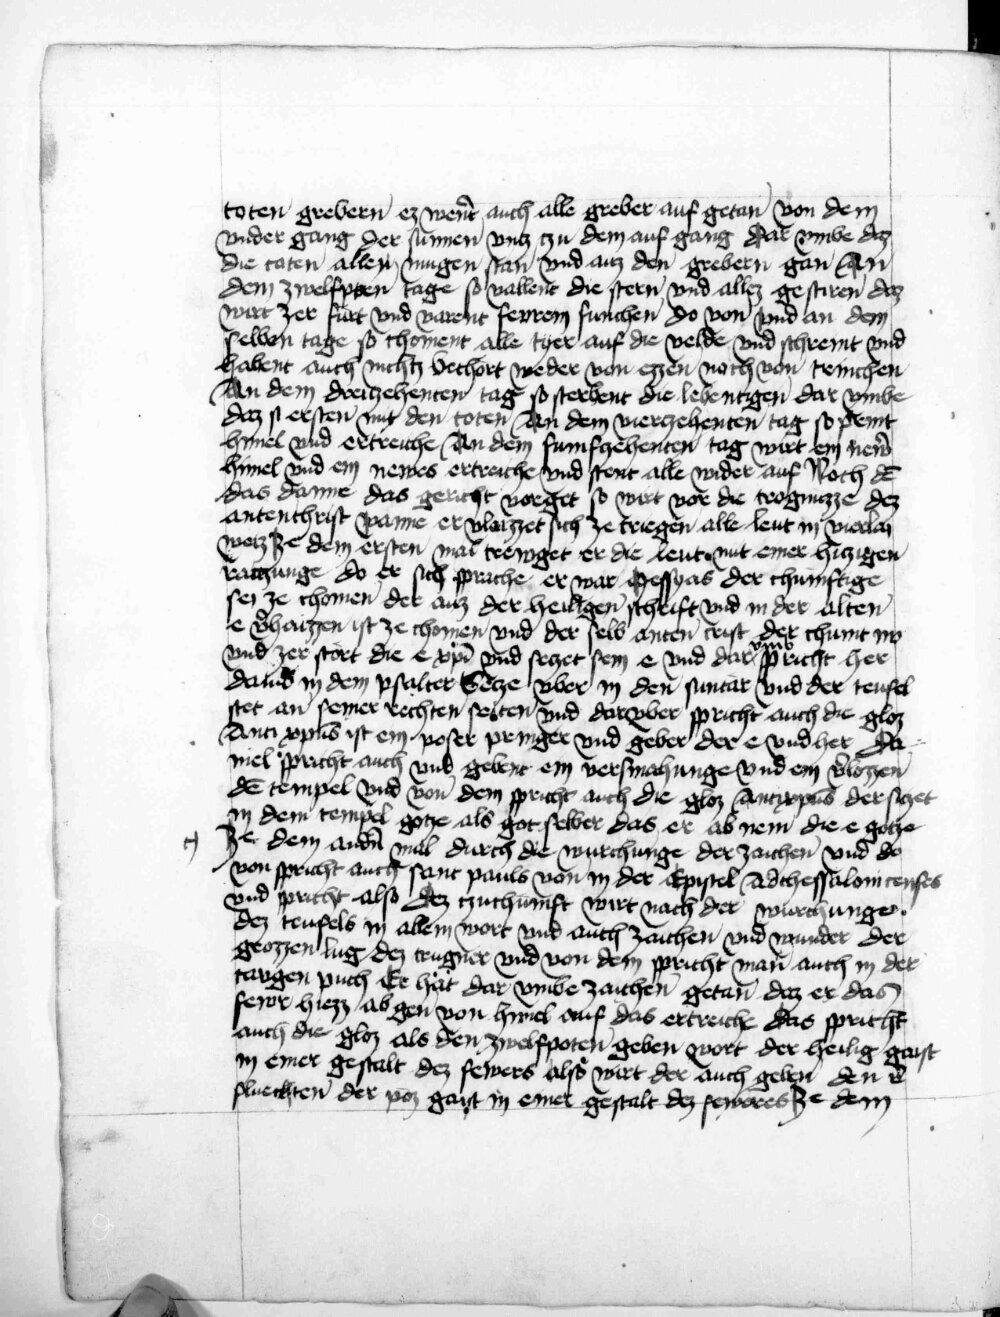 toten grebern ez wert auch alle greber auf getan von dem
vnder gang der sunnen vntz tzu dem auf gang dar vmbe daz
die toten allen mugen stan vnd auz den grebern gan An
dem zwelfpten tage so vallent die stern vnd allez gestiren daz
wirt zer furt vnd varent fewrein funchen do von vnd an dem
selben tage so choment alle tyer auf die velde vnd schreint vnd
habent auch nichtz bechort weder von ezzen noch von trinchen
An dem dreitzehenten tag so sterbent die lebentigen dar vmbe
daz si ersten mit den toten An dem vierzehenten tag so print
himel vnd ertreiche An dem funfzehenten tag wirt ein new
himel vnd ein newes ertreiche vnd stent alle wider auf Noch dē
das danne das gericht vorget so wirt vor die trognuzze dez
antenchrist wanne er vleizzet sich ze triegen alle leut in vierlai
weiz Ze dem ersten mal trewget er die leut mit einer hitzigen
ratzunge do er sich spräche er war Messyas der chunftige
sei ze chomen der auz der heiligen schrift vnd in der alten
e vhaizzen ist ze chomen vnd der selb anten crist der chumt
vnd zer stort die e xpi vnd setzet sein e vnd dar vmb spricht her
dauid in dem psalter Setze vber in den suntar vnd der teufel
stet an seiner rechten seiten vnd dar vber spricht auch die gloz
Anti xpus ist ein poser pringer vnd geber der e vnd her Da-
niel spricht auch vnd gebent ein versmahunge vnd ein
dē tempel vnd von dem spricht auch die gloz Antixpus der sitzet
in dem tempel gotze als got selber das er ab nem die e gotze
Ze dem andn mal durch die wurchunge der zaichen vnd do
von spricht auch sant pauls von in der Epistel Ad thessalonicenses
vnd spricht also dez tzuchunft wirt nach der wurchunge
dez teufels in allem wort vnd auch zaichen vnd wunder der
grozzen lug dez trugner vnd von dem spricht man auch in der
taugen puch Er hat dar vmbe zaichen getan daz er das
fewr hiezz ab gen von himel auf das ertreiche das spricht
auch die gloz als den zwelfpoten geben wort der heilig gaist
in einer gestalt dez fewers also wirt der auch geben den v
fluechten der poz gaist in einer gestalt dez fewores Ze dem